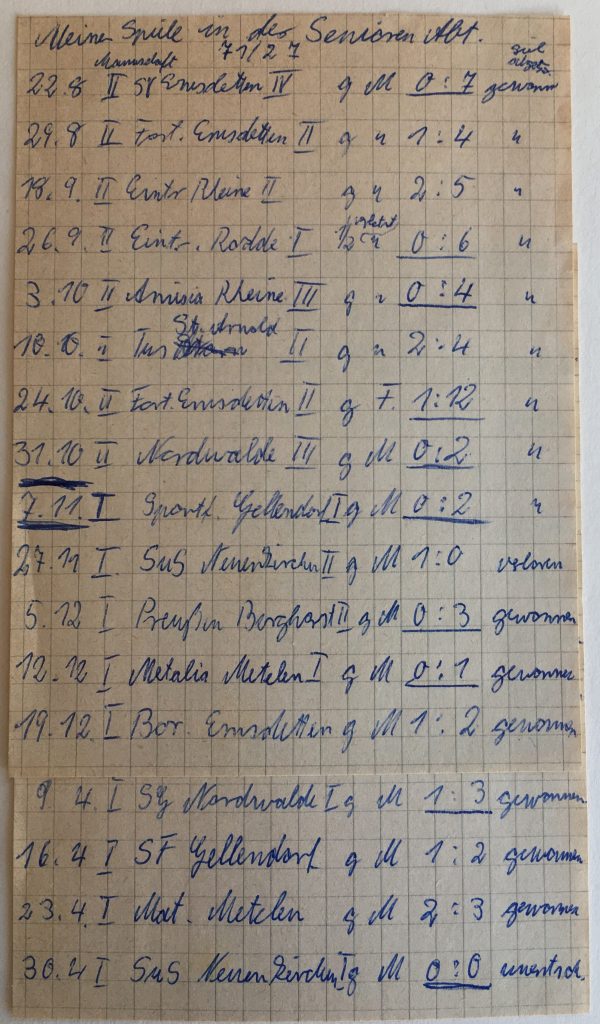 Meine Spiele in der Senioren Abt.
71/27
Mannschaft
22.8 II SV Emsdetten IV g M 0:7 gewonn
29.8 II Fort. Emsdetten II g " 1:4 "
18.9. II Eintr Rheine II g " 2:5 "
26.9. II Eintr. Rodde I 1/2 verletzt " 0:6 "
3.10 II Amisia Rheine III g " 0:4 "
St. Arnold
10.10. II Tus II g " 2:4 "
24.10. II Fort. Emsdetten II g F. 1:12 "
31.10 II Nordwalde III g M 0:2 "
7.11. I Sportf. Gellendorf I g M 0:2 "
27.11 I. SuS Neuenkirchen II g M 1:0 verloren
5.12 I Preußen Borghorst II g M 0:3 gewonnen
12.12 I Metalia Metelen I g M 0:1 gewonnen
19.12. I Bor. Emsdetten g M 1:2 gewonnen
9 4. I SG Nordwalde I g M 1:3 gewonnen
16.4 I SF Gellendorf g M 1:2 gewonnen
23.4. I Mat. Metelen g M 2:3 gewonnen
30.4 I SuS Neuenkirchen I g M 0:0 unentsch.